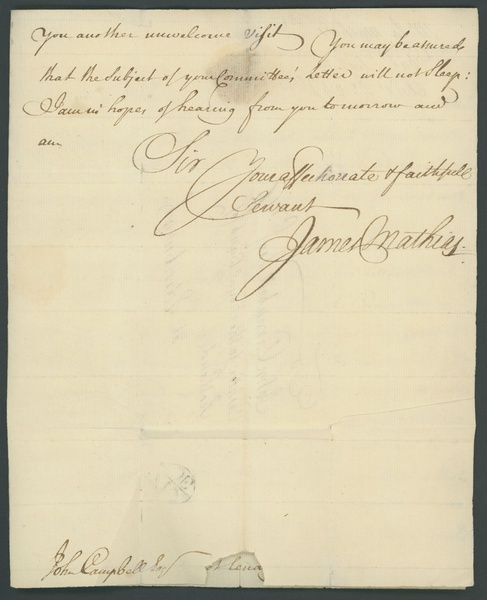 You another unwelcome visit You may be assured
that the Subject of your Committee's Letter will not Sleep:
I am in hopes of hearing from you tomorrow and
am
Sir
Your affectionate & faithfull
Servant
James Mathias.
John Campbell Esq